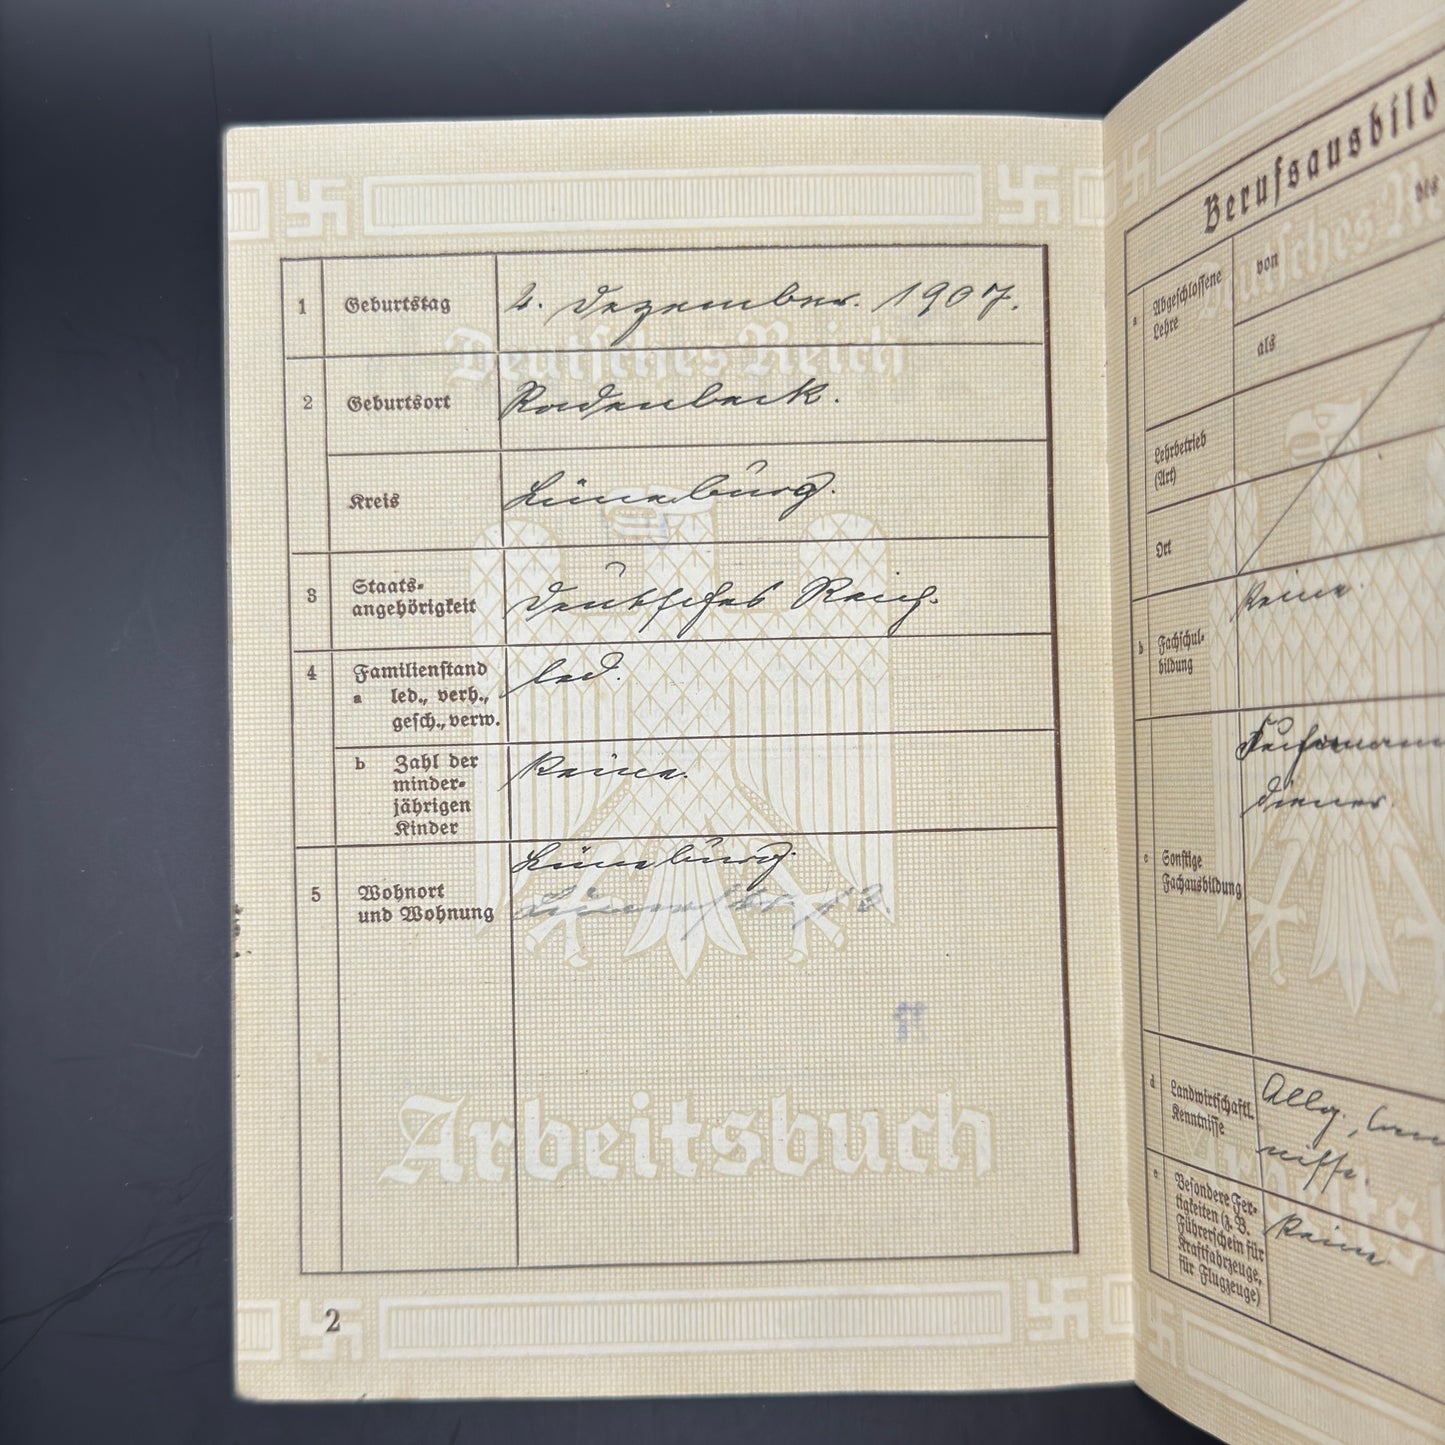 1 Geburtstag 2. Dezember. 1907.
Deutsches Reich
2 Geburtsort Radenbeck.
Kreis Lüneburg.
3 Staats-
angehörigkeit Deutsches Reich.
4 Familienstand led.
a led., verh.,
gesch., verw.
b Zahl der keine.
minder-
jährigen
Kinder
5 Wohnort Lüneburg.
und Wohnung
Arbeitsbuch
2
Berufsausbild
a Abgeschlossene
Lehre
von bis
als
Lehrbetrieb
(Art)
Ort
b Fachschul-
bildung
keine.
c Sonstige
Fachausbildung
diener.
d Landwirtschaftl.
Kenntnisse
Allg.,
nisse.
e Besondere Fer-
tigkeiten (z. B.
Führerschein für
Kraftfahrzeuge,
für Flugzeuge)
keine.